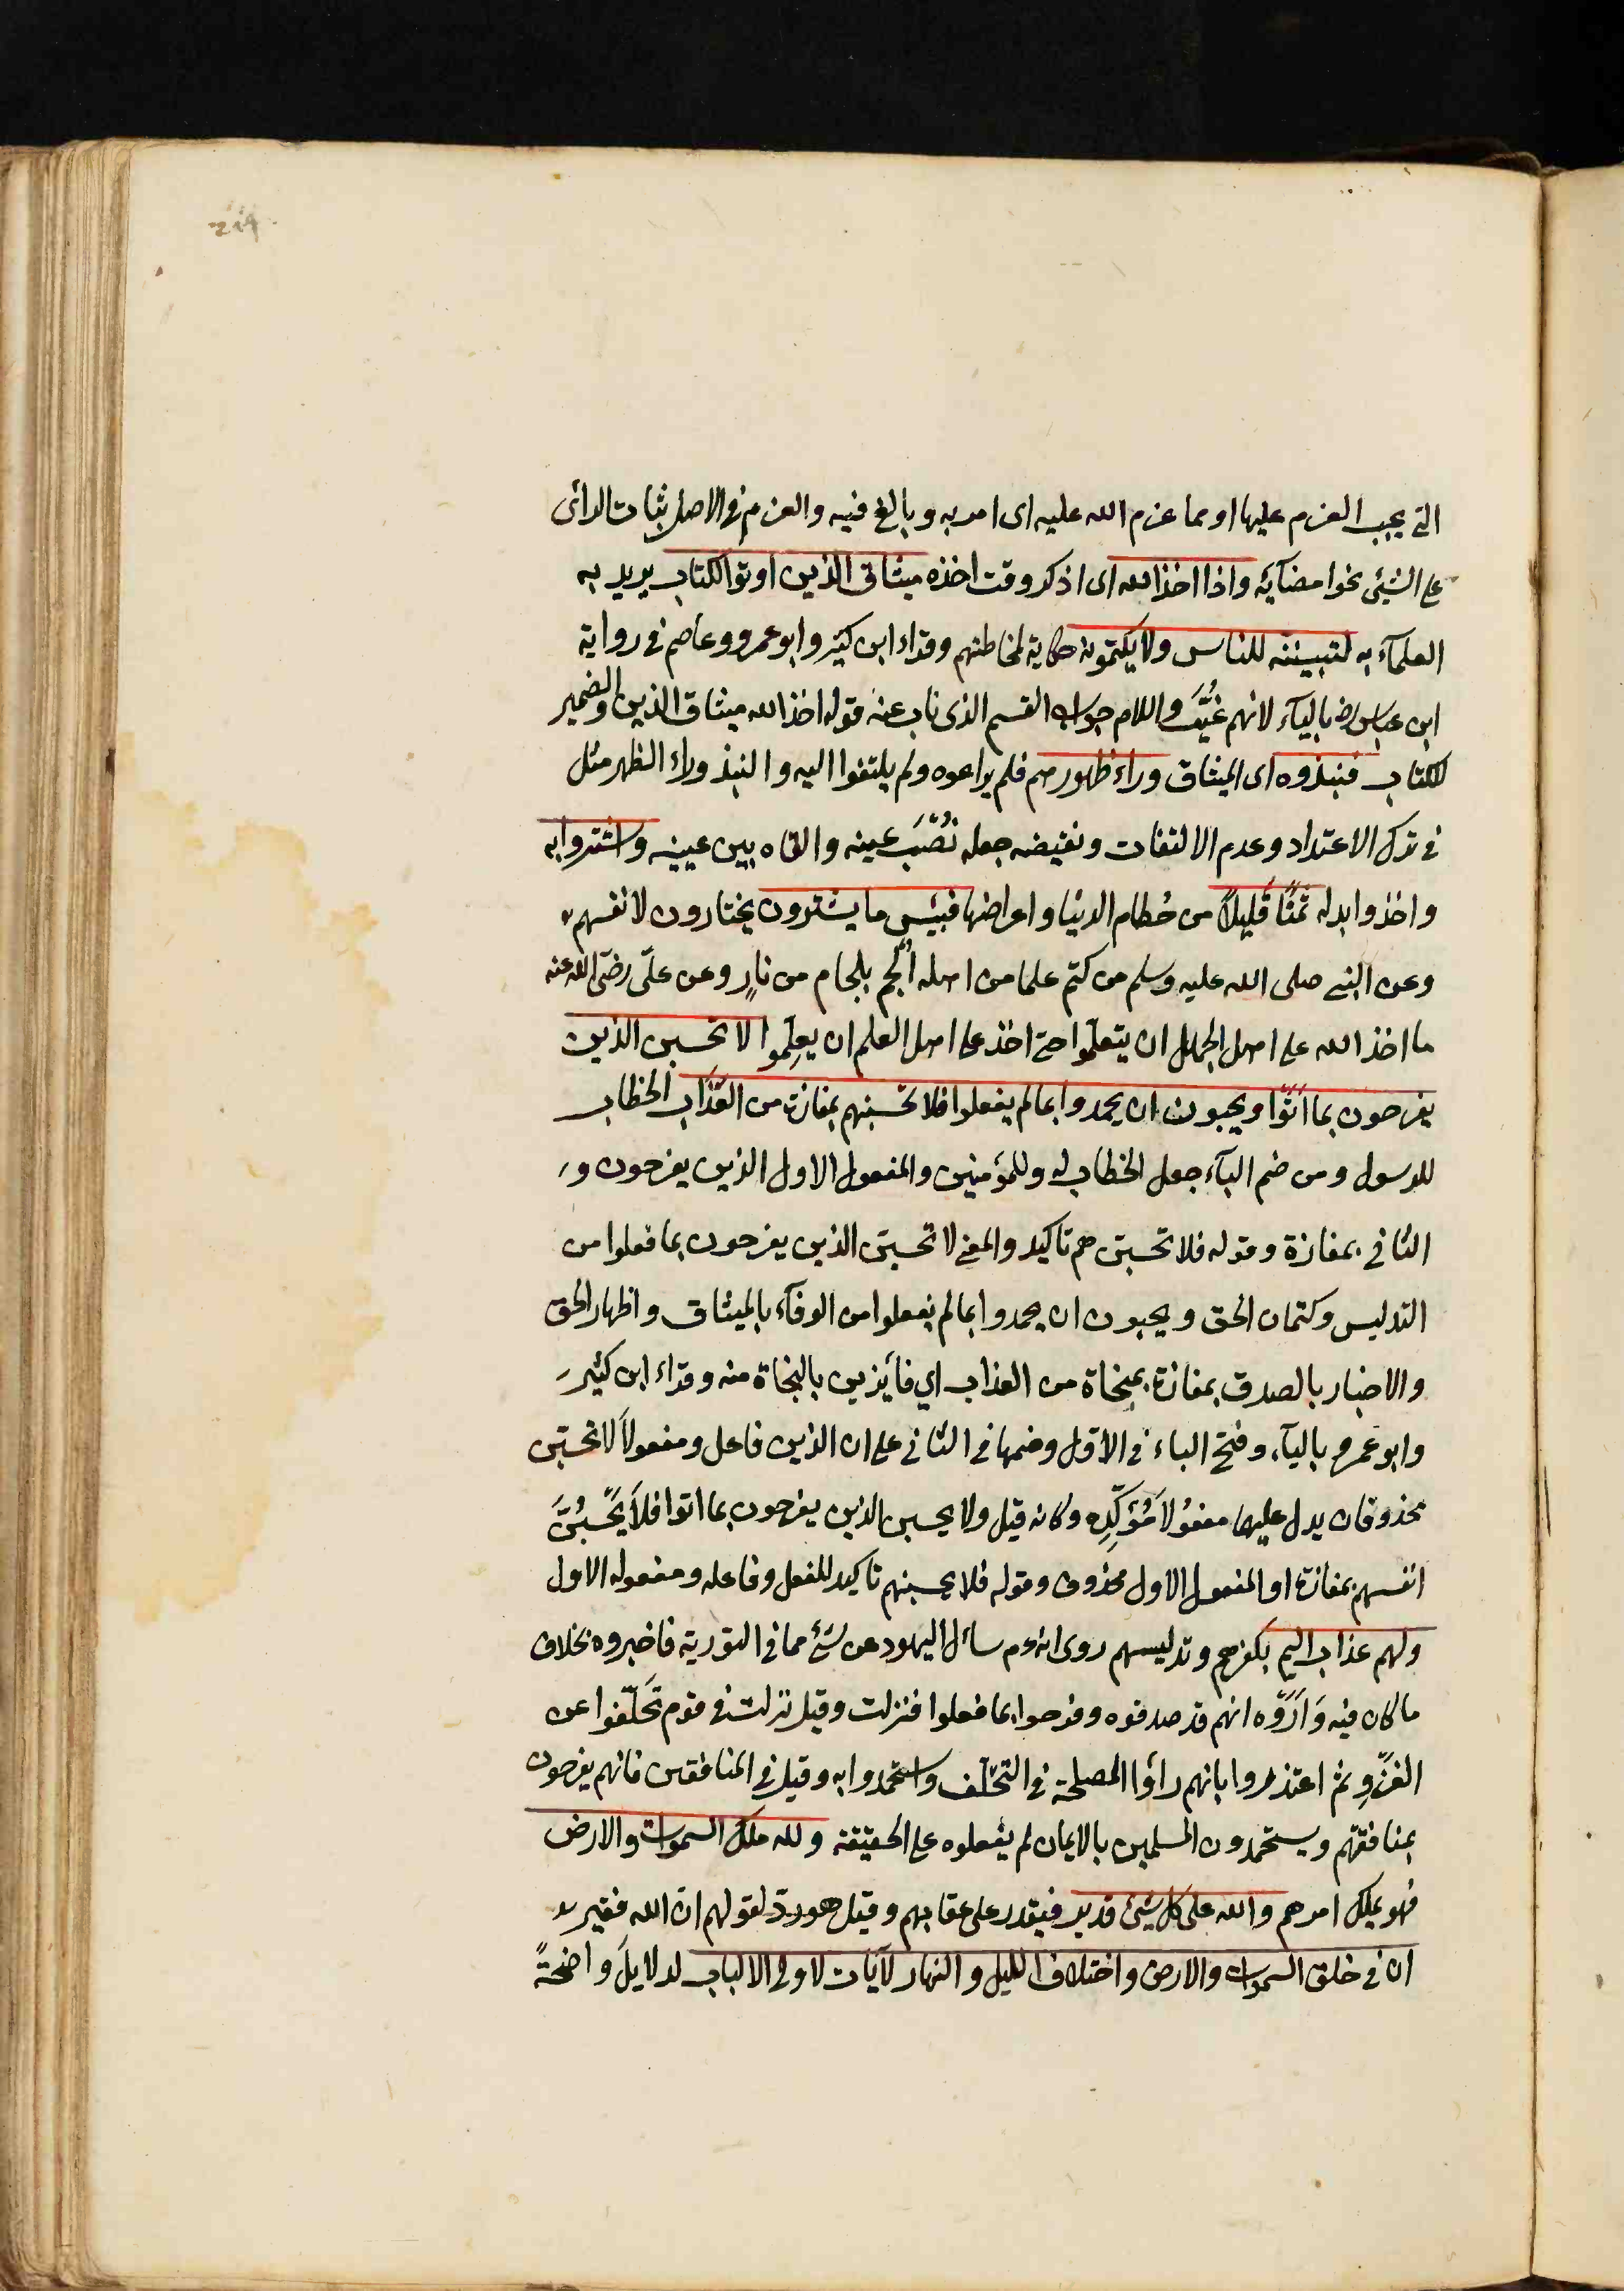 219
التي يجب العزم عليها او مما عزم الله عليه اى امر به وبالغ فيه والعزم فى الاصل ثبات الرائى
على الشيئ نحوا مضآيه واذا اخذ الله اى اذكر وقت اخذه ميثاق الذين اوتوا الكتاب يريد به
العلمآء به لتبيننه للناس ولا يكتمونه حكاية لمخاطبتهم وقراء ابن كثير وابو عمرو وعاصم فى رواية
ابن عباس رض باليآء لانهم غُيَّبٌ واللام جواب القسم الذى ناب عنه قوله اخذ الله ميثاق الذين والضمير
للكتاب فنبذوه اى الميثاق وراء ظهورهم فلم يراعوه ولم يلتفوا اليه والنبذ وراء الظهر مثل
فى ترك الاعتداد وعدم الالتفات ونقيضه جعله نُصْبَ عينه والقاه بين عينيه واشتروا به
واخذوا بدله ثمنًا قليلاً من حُطام الدنيا واعراضها فبئس ما يشترون يختارون لانفسهم
وعن النبى صلى الله عليه وسلم من كتم علما من اهله اُلجم بلجام من نارٍ وعن علىّ رضى الله عنه
ما اخذ الله على اهل الجهل ان يتعلّموا حتى اخذ على اهل العلم ان يعلِّموا لا تحسبن الذين
يفرحون بما اَتَوْا ويحبون ان يحمدوا بما لم يفعلوا فلا تحسبنهم بمفازة من العَذَاب الخطاب
للرسول ومن ضم البآء جعل الخطاب له وللمؤمنين والمفعول الاول الذين يفرحون و
الثانى بمفازة وقوله فلا تحسبنّ هم تاكيد والمعنى لا تحسبنّ الذين يفرحون بما فعلوا من
التدليس وكتمان الحق ويحبون ان يحمدوا بما لم يفعلوا من الوفآء بالميثاق واظهار الحق
والاخبار بالصدق بمفازة بمنجاة من العذاب اي فائزين بالنجاة منه وقراء ابن كثير
وابو عمرو باليآء وفتح الباء فى الاوّل وضمها فى الثانى على ان الذين فاعل ومفعولاَ لا تحسبنّ
محذوفان يدل عليهما مفعُولاَ مُؤكِّدِه وكانه قيل ولا يحسبن الذين يفرحون بما اتوا فلاَ يَحْسَبُنَّ
انفسهم بمفازة او المفعول الاول محذوف وقوله فلا يحسبنهم تاكيد للفعل وفاعله ومفعوله الاول
ولهم عذاب اليم بكفرهم وتدليسهم روى انه ءم سائل اليهود عن شئ مما فى التورية فاخبروه بخلاف
ما كان فيه وَاَرَوْه انهم قد صدقوه وفرحوا بما فعلوا فنزلت وقيل نزلت فى قوم تَخَلّفوا عن
الغزْوِ ثم اعتذروا بانهم رأوا المصلحة فى التخلّف واستحمدوا به وقيل فى المنافقين فانهم يفرحون
بمنافقتهم ويستحمدون المسلمين بالايمان لم يفعلوه على الحقيقة ولله ملك السموات والارض
فهو يملك امرهم والله على كل شيئ قدير فيقدر على عقابهم وقيل هو ردّ لقولهم ان الله فقير
ان فى خلق السموات والارض واختلاف الليل والنهار لآيات لاولى الالباب لدلايلَ واضحةً